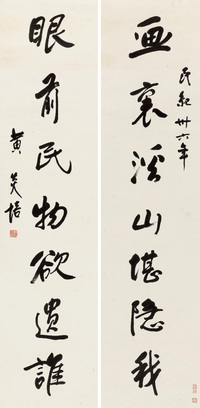 民紀卅六年
画裏溪山堪隱我
眼前民物欲遺誰
黄炎培